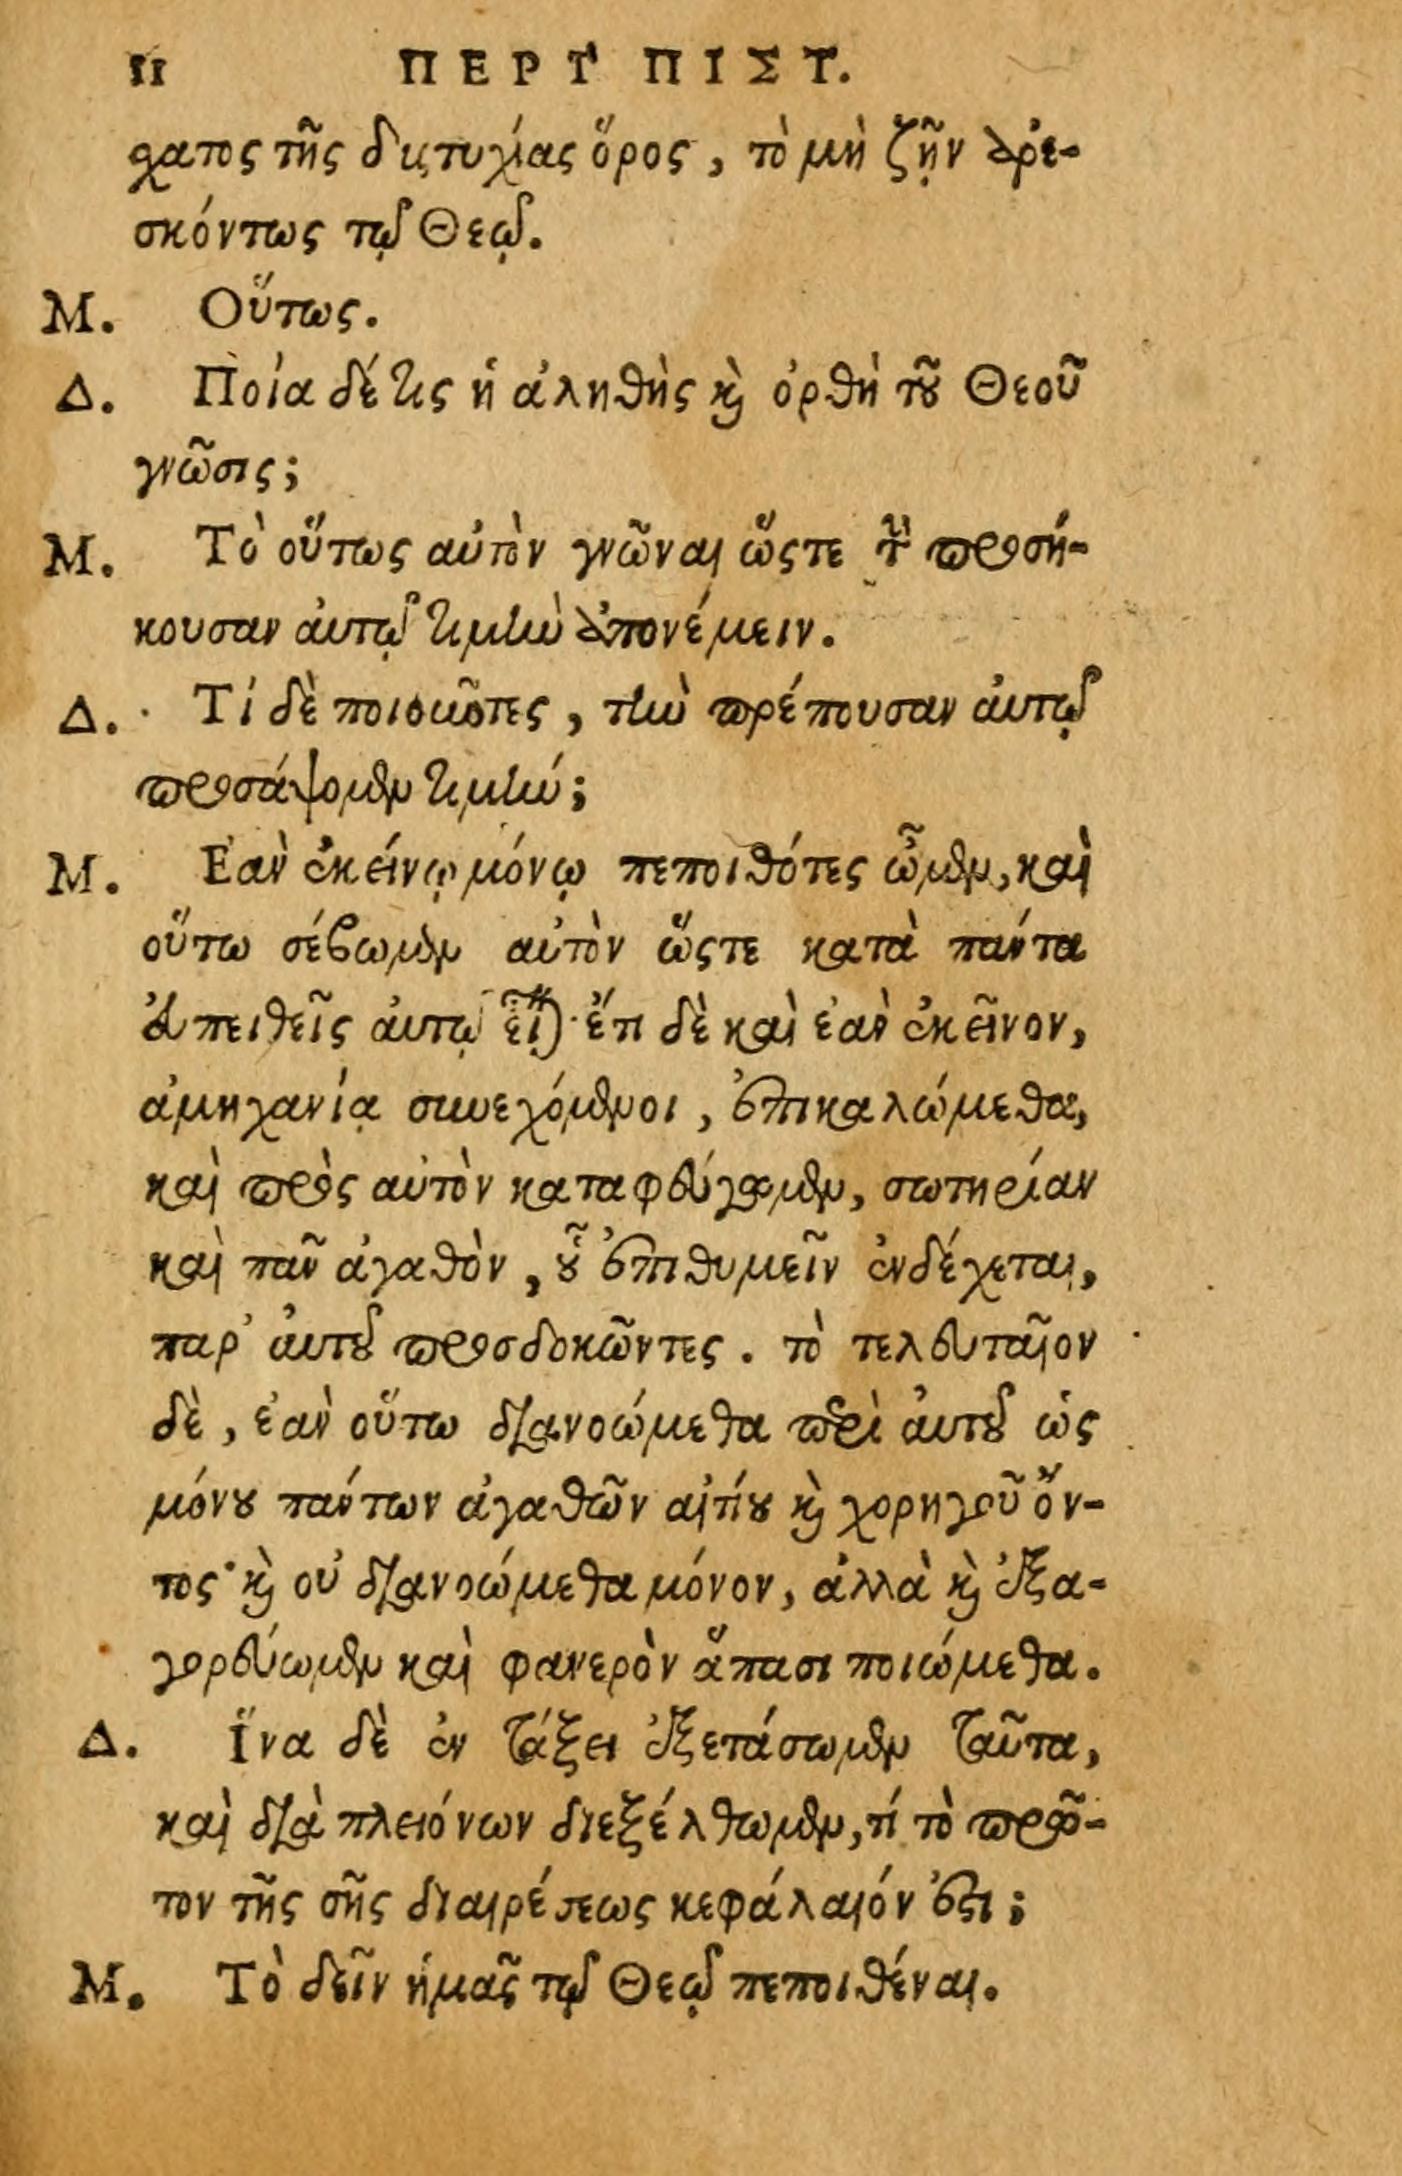 11 ΠΕΡῚ ΠΙΣΤ.
χατος τῆς δυςτυχίας ὅρος, τὸ μὴ ζῇν ἀρε-
σκόντως τῷ Θεῷ.
Μ. Οὕτως.
Δ. Ποία δέ τις ἡ ἀληθὴς καὶ ὀρθὴ τοῦ Θεοῦ
γνῶσις;
Μ. Τὸ οὕτως αὐτὸν γνῶναι ὥςτε τὴν προσή-
κουσαν ἀυτῷ τιμὴν ἀπονέμειν.
Δ. Τί δὲ ποιοῦντες, τὴν πρέπουσαν ἀυτῷ
προσάψομεν τιμήν;
Μ. Ἐὰν ἐκείνῳ μόνῳ πεποιθότες ὦμεν, καὶ
οὕτω σέβωμεν αὐτὸν ὥςτε κατὰ πάντα
ἀπειθεῖς ἀυτῷ εἶναι· ἔτι δὲ καὶ ἐὰν ἐκεῖνον,
ἀμηχανίᾳ συνεχόμενοι, ἐπικαλώμεθα,
καὶ πρὸς αὐτὸν καταφεύγωμεν, σωτηρίαν
καὶ πᾶν ἀγαθὸν, οὗ ἐπιθυμεῖν ἐνδέχεται,
παρ' ἀυτοῦ προσδοκῶντες. τὸ τελευταῖον
δὲ, ἐὰν οὕτω διανοώμεθα περὶ ἀυτοῦ ὡς
μόνου πάντων ἀγαθῶν αἰτίου καὶ χορηγοῦ ὄν-
τος· καὶ οὐ διανοώμεθα μόνον, ἀλλὰ καὶ ἐξα-
γορεύωμεν καὶ φανερὸν ἅπασι ποιώμεθα.
Δ. Ἵνα δὲ ἐν τάξει ἐξετάσωμεν ταῦτα,
καὶ διὰ πλειόνων διεξέλθωμεν, τί τὸ πρῶ-
τον τῆς σῆς διαιρέσεως κεφάλαιόν ἐςι;
Μ. Τὸ δεῖν ἡμᾶς τῷ Θεῷ πεποιθέναι.